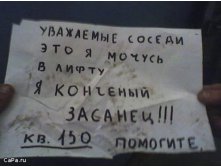 УВАЖАЕМЫЕ СОСЕДИ
ЭТО Я МОЧУСЬ
В ЛИФТУ
Я КОНЧЕНЫЙ
ЗАСАНЕЦ!!!
КВ. 150 ПОМОГИТЕ.
CaPa.ru